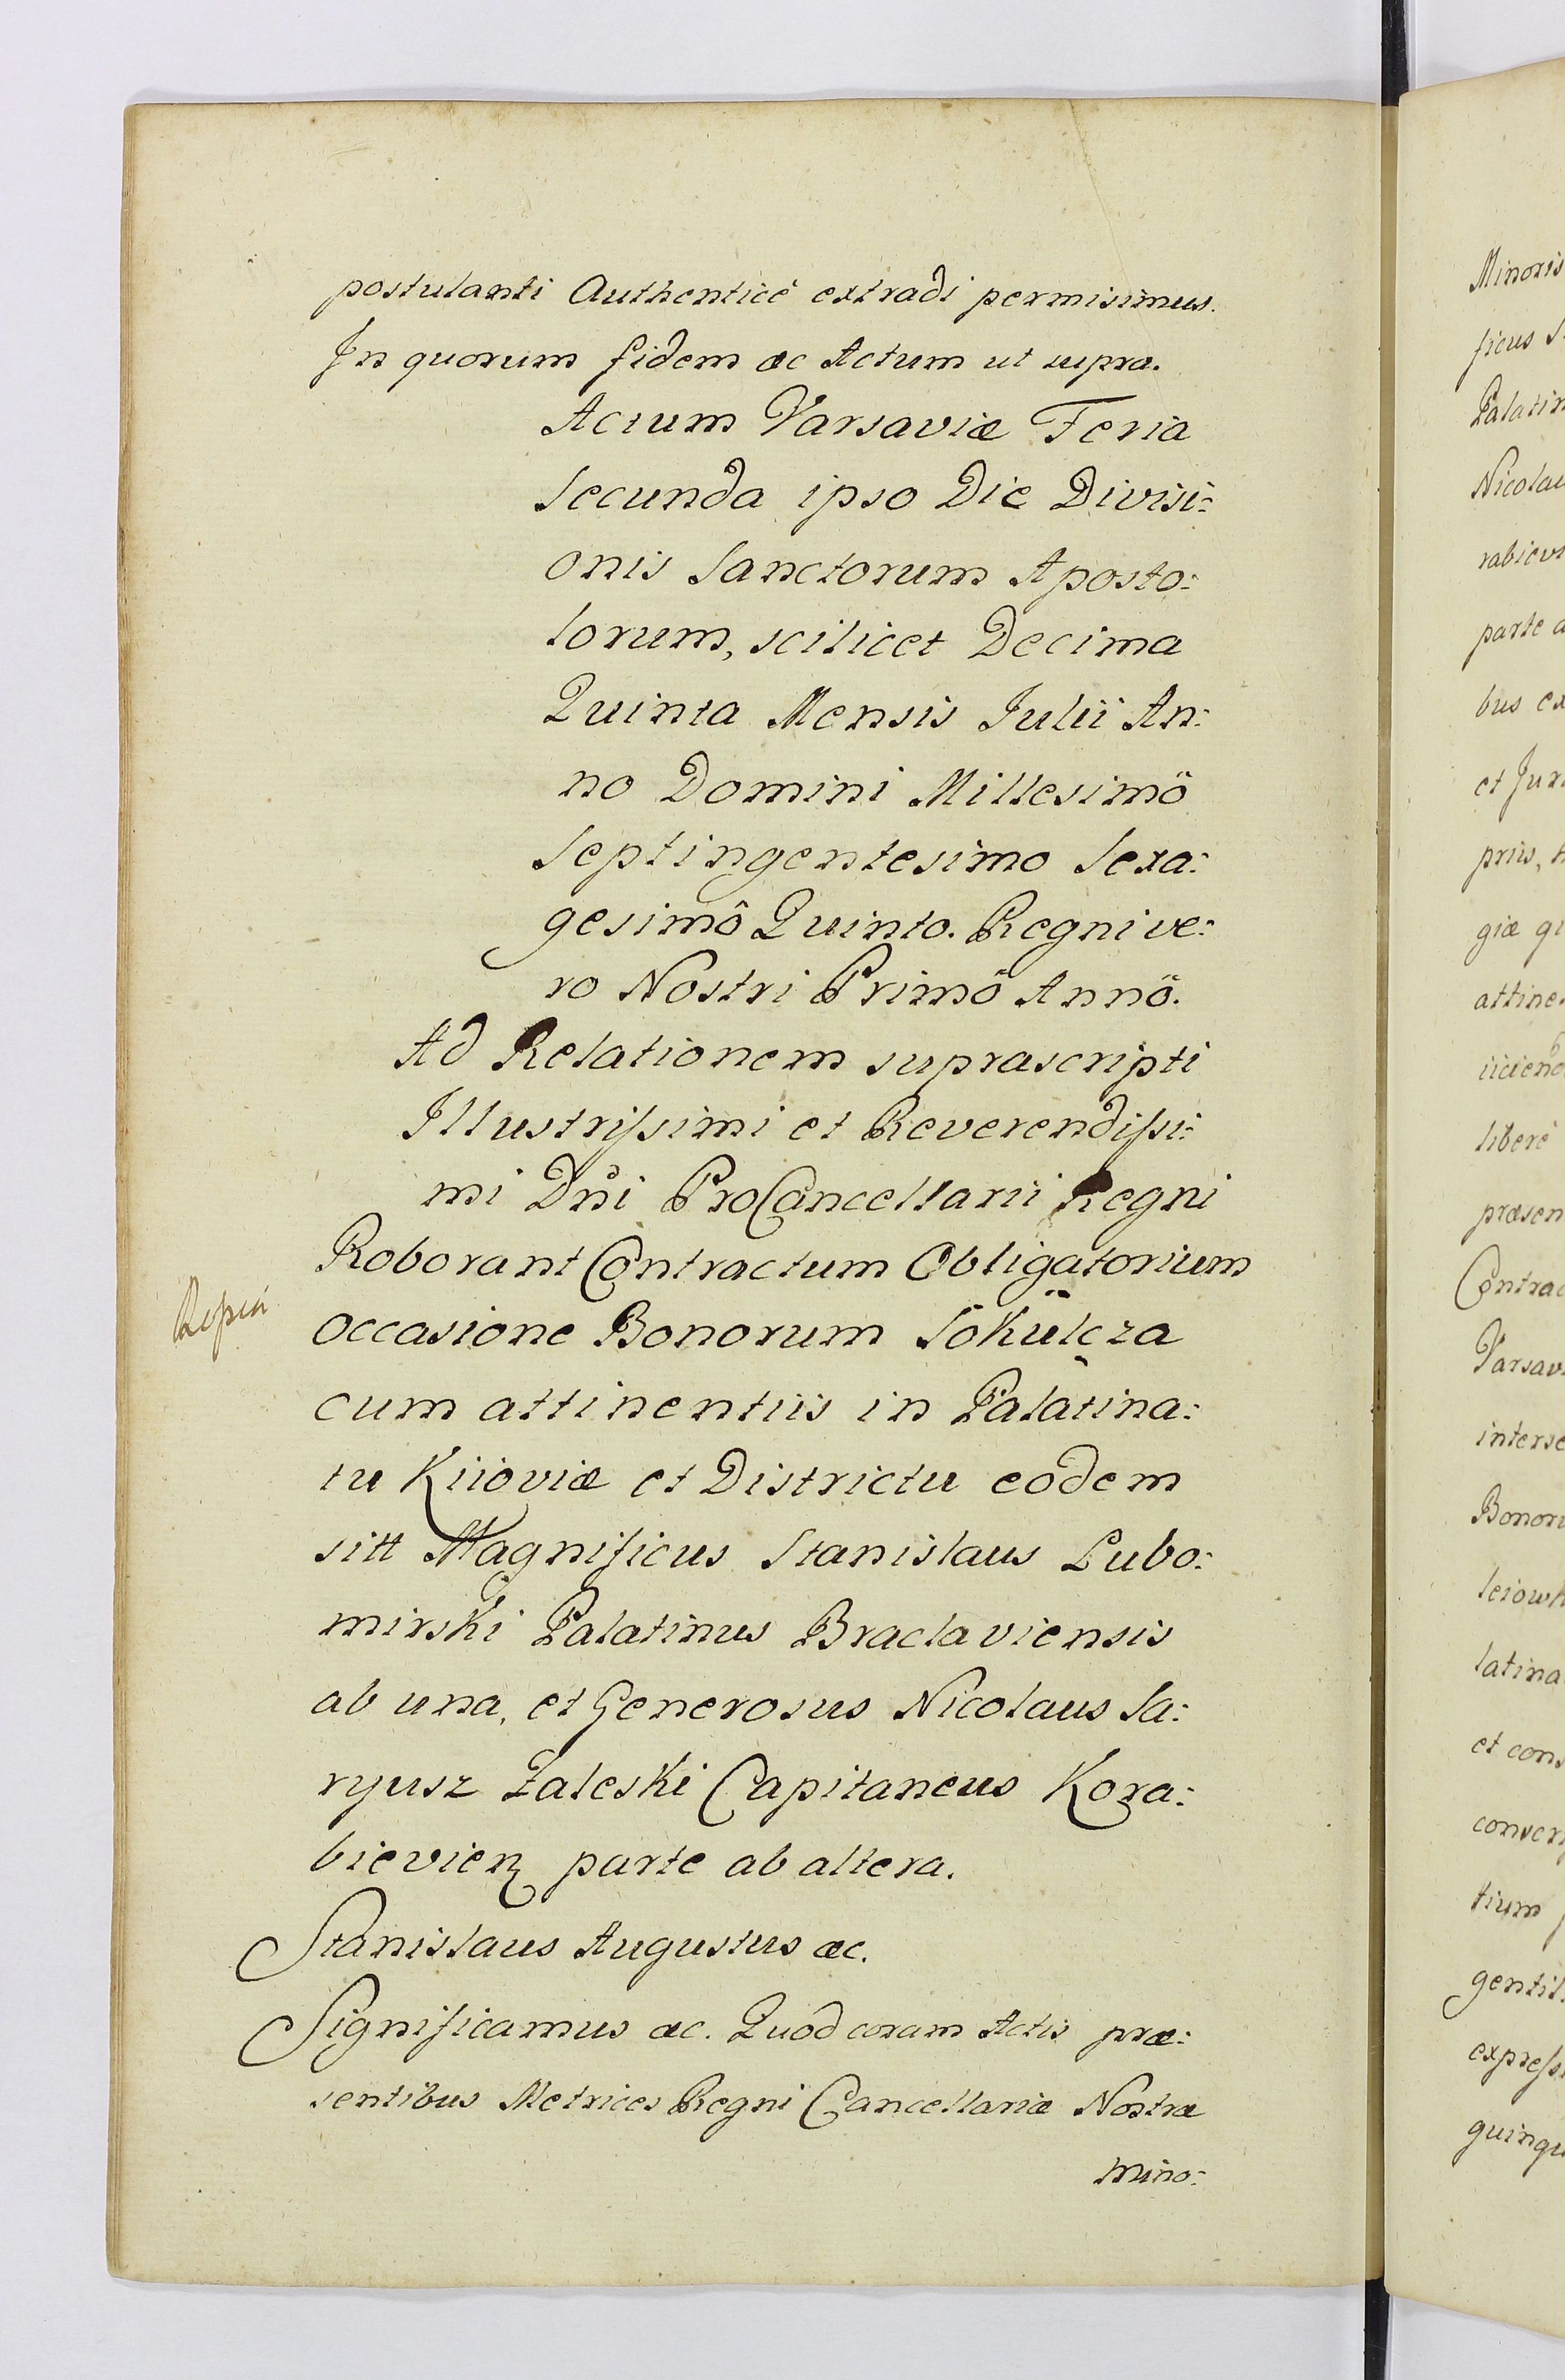 postulanti Authenticè extradi permisimus.
In quorum fidem æc Actum ut supra.
Actum Varsaviæ Feria
Secunda ipso Die Divisi:
onis Sanctorum Aposto:
lorum, scilicet Decima
Quinta Mensis Julii An:
no Domini Millesimô
Septingentesimo Sexa:
gesimô Quinto. Regni ve:
ro Nostri Primô Annô.
Ad Relationem suprascripti
Illustriſsimi et Reverendiſsi:
mi Dñi ProCancellarii Regni
Roborant Contractum Obligatorium
occasione Bonorum Sokulcza
cum attinentiis in Palatina:
tu Kiioviæ et Districtu eodem
sitt Magnificus Stanislaus Lubo:
mirski Palatinus Braclaviensis
ab una, et Generosus Nicolaus Sa:
ryusz Zaleski Capitaneus Kora:
bievien parte ab altera.
Stanislaus Augustus æc.
Significamus æc. Quod coram Actis præ:
sentibus Metrices Regni Cancellariæ Nostræ
Mino:
Minoris
ficus S
Palatin
Nicolau
rabievi
parte a
bus ex
et Juri
priis,
giæ qu
attine
iiciend
liberè
præsen
Contrac
Varsav
interse
Bonoru
leiowk
latina
et cons
conven
tium
gentil
expreſs
quinqu